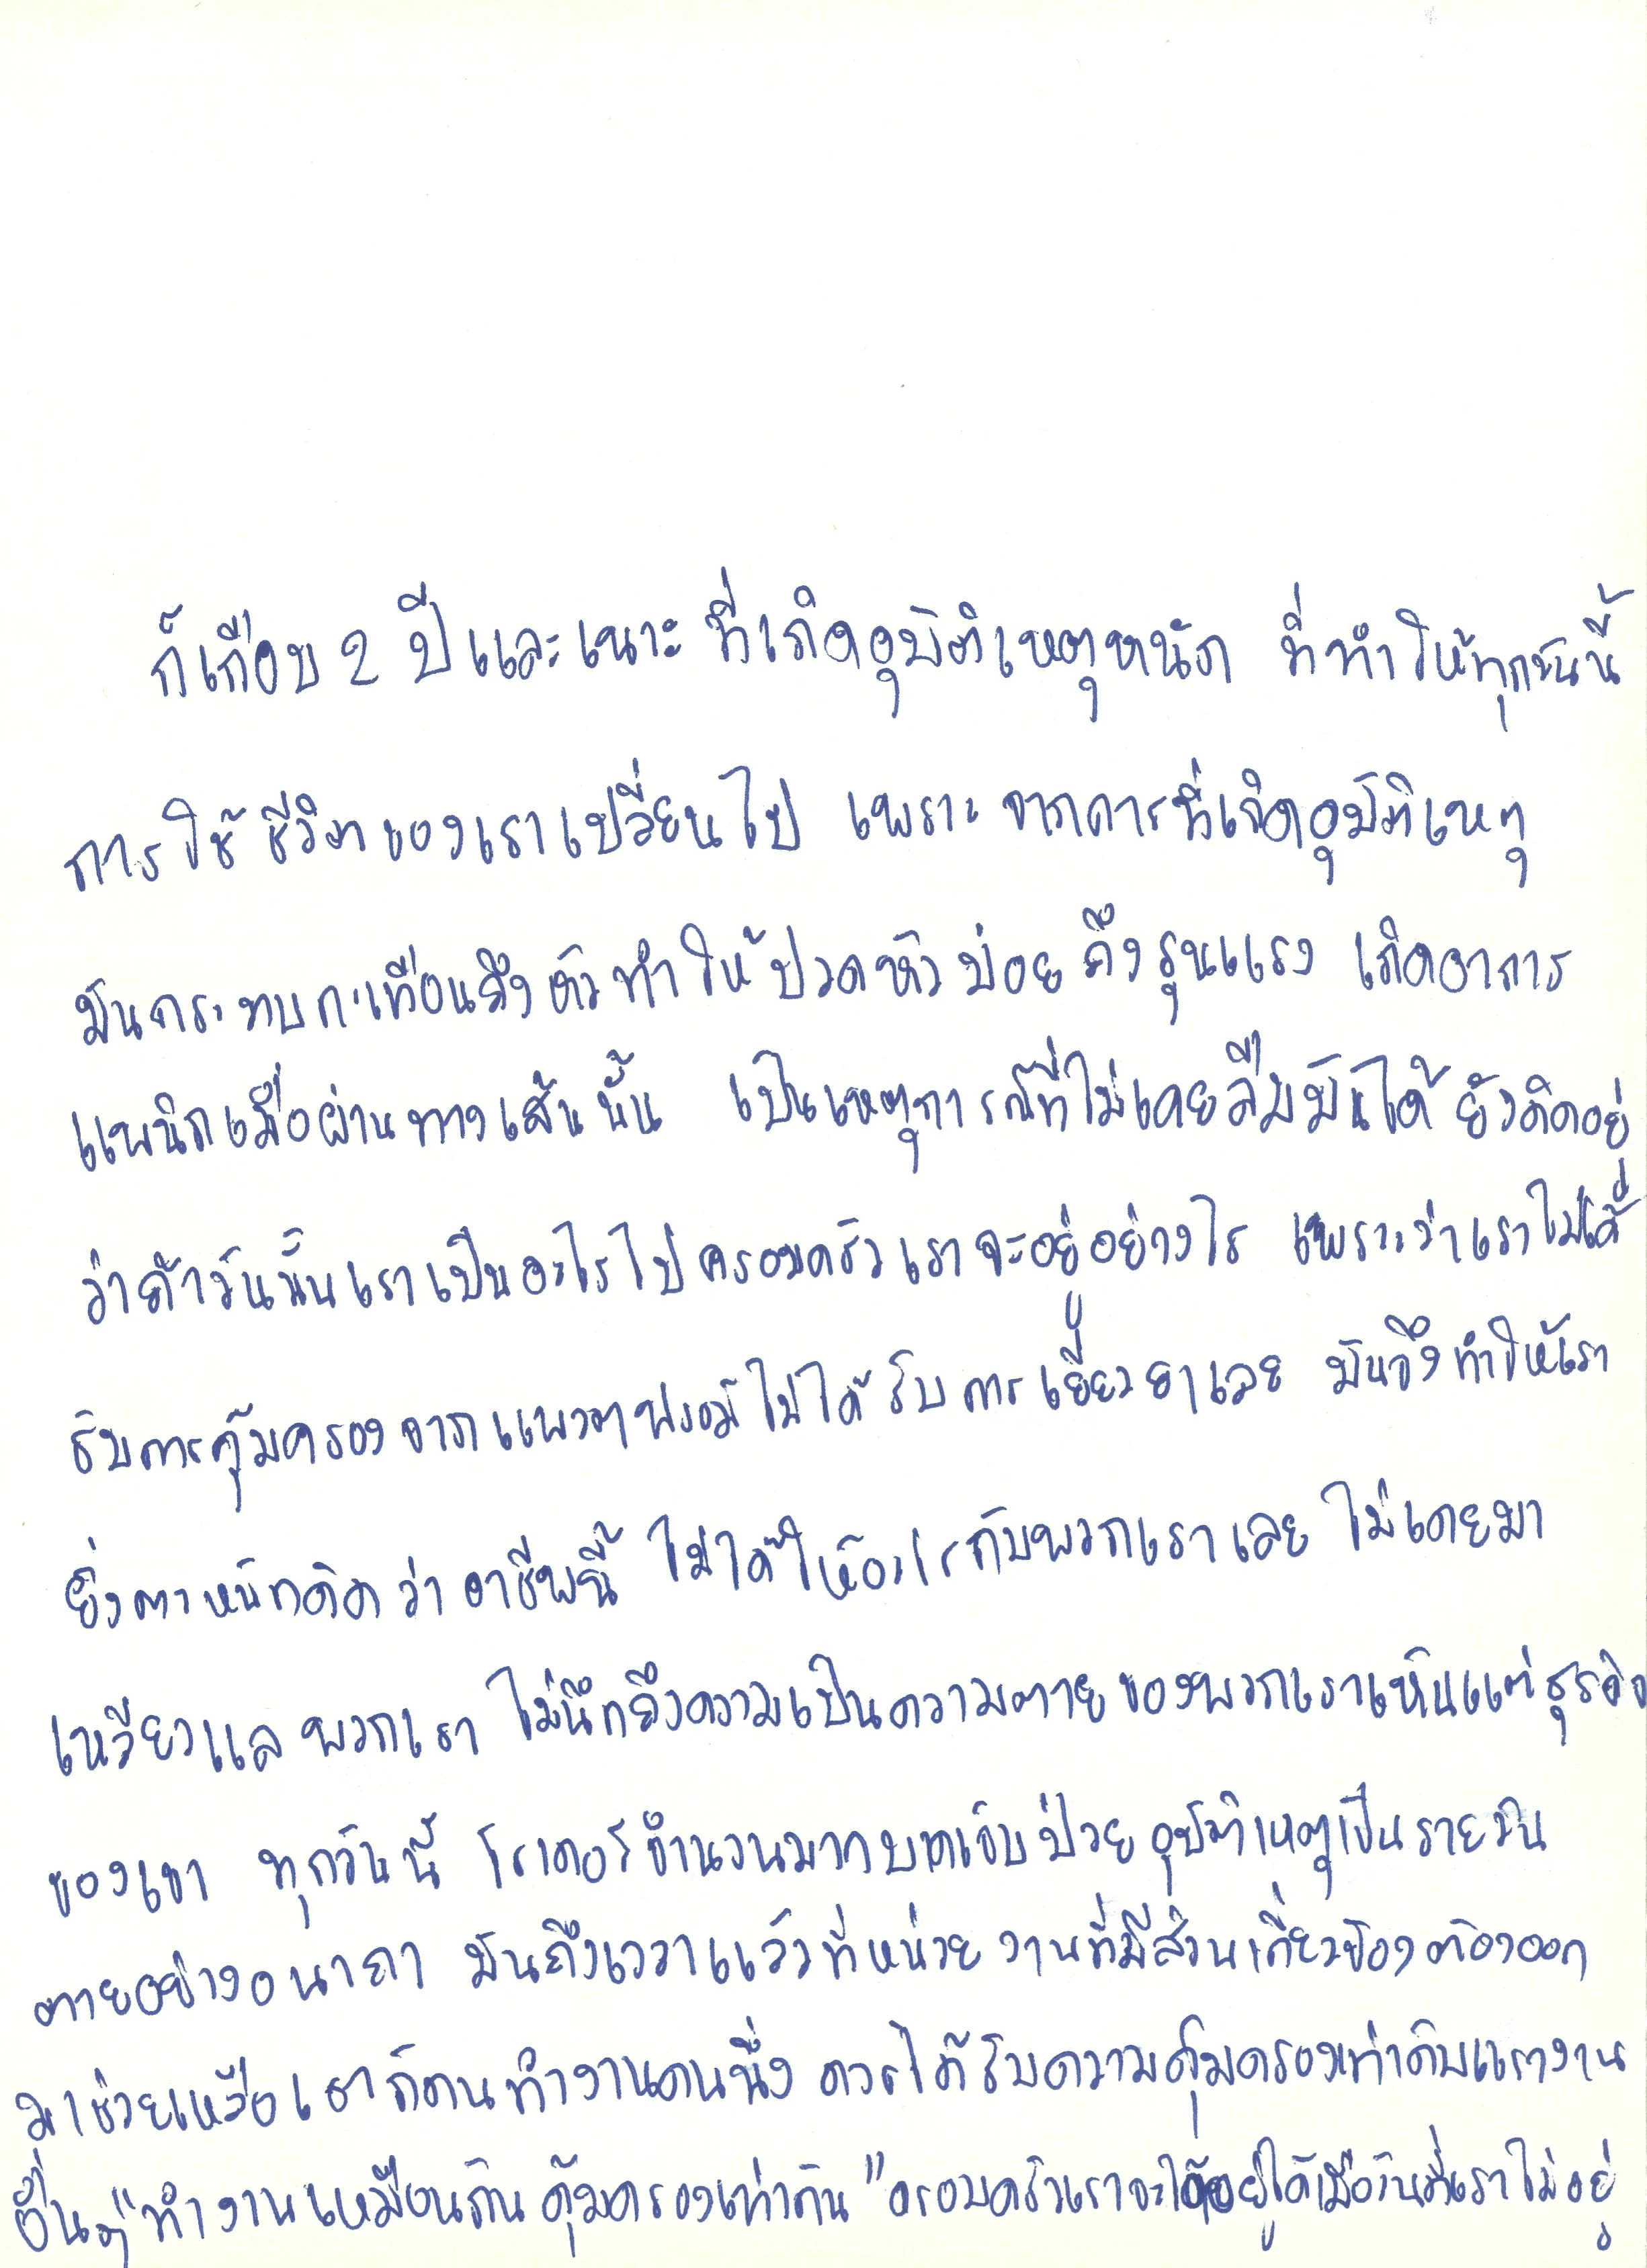 ก็เกือบ 2 ปีและเนาะ ที่เกิดอุบัติเหตุหนัก ที่ทำให้ทุกวันนี้
การใช้ชีวิตของเราเปลี่ยนไป เพราะ จากการที่เกิดอุบัติเหตุ
มันกระทบกะเทือนถึงหัวทำให้ปวดหัวบ่อยถึงรุนแรง เกิดอาการ
แพนิกเมื่อผ่านทางเส้นนั้น เป็นเหตุการณ์ที่ไม่เคยลืมมันได้ ยังคิดอยู่
ว่าถ้าวันนั้นเราเป็นอะไรไปครอบครัวเราจะอยู่อย่างไร เพราะว่าเราไม่ได้
รับการคุ้มครองจากแพลตฟรอม์ไม่ได้รับการเยี่ยวยาเลย มันจึงทำให้เรา
ยิ่งตะหนักคิดว่าอาชีพนี้ ไม่ได้ให้อะไรกับพวกเราเลย ไม่เคยมา
เหลียวแลพวกเรา ไม่นึกถึงความเป็นความตายของพวกเราเห็นแต่ธุรกิจ
ของเขา ทุกวันนี้ ไรเดอร์จำนวนมากบาดเจ็บป่วยอุบัติเหตุเป็นรายวัน
ตายอย่างอนาถา มันถึงเวลาแล้วที่หน่วยงานที่มีส่วนเกี่ยวข้องต้องออก
มาช่วยเหลือเราก็คนทำงานคนนึ่ง ควรได้รับความคุ้มครองเท่ากับแรงงาน
อื่นๆ "ทำงานเหมือนกัน คุ้มครองเท่ากัน" ครอบครัวเราจะได้อยู่ได้เมื่อวันที่เราไม่อยู่